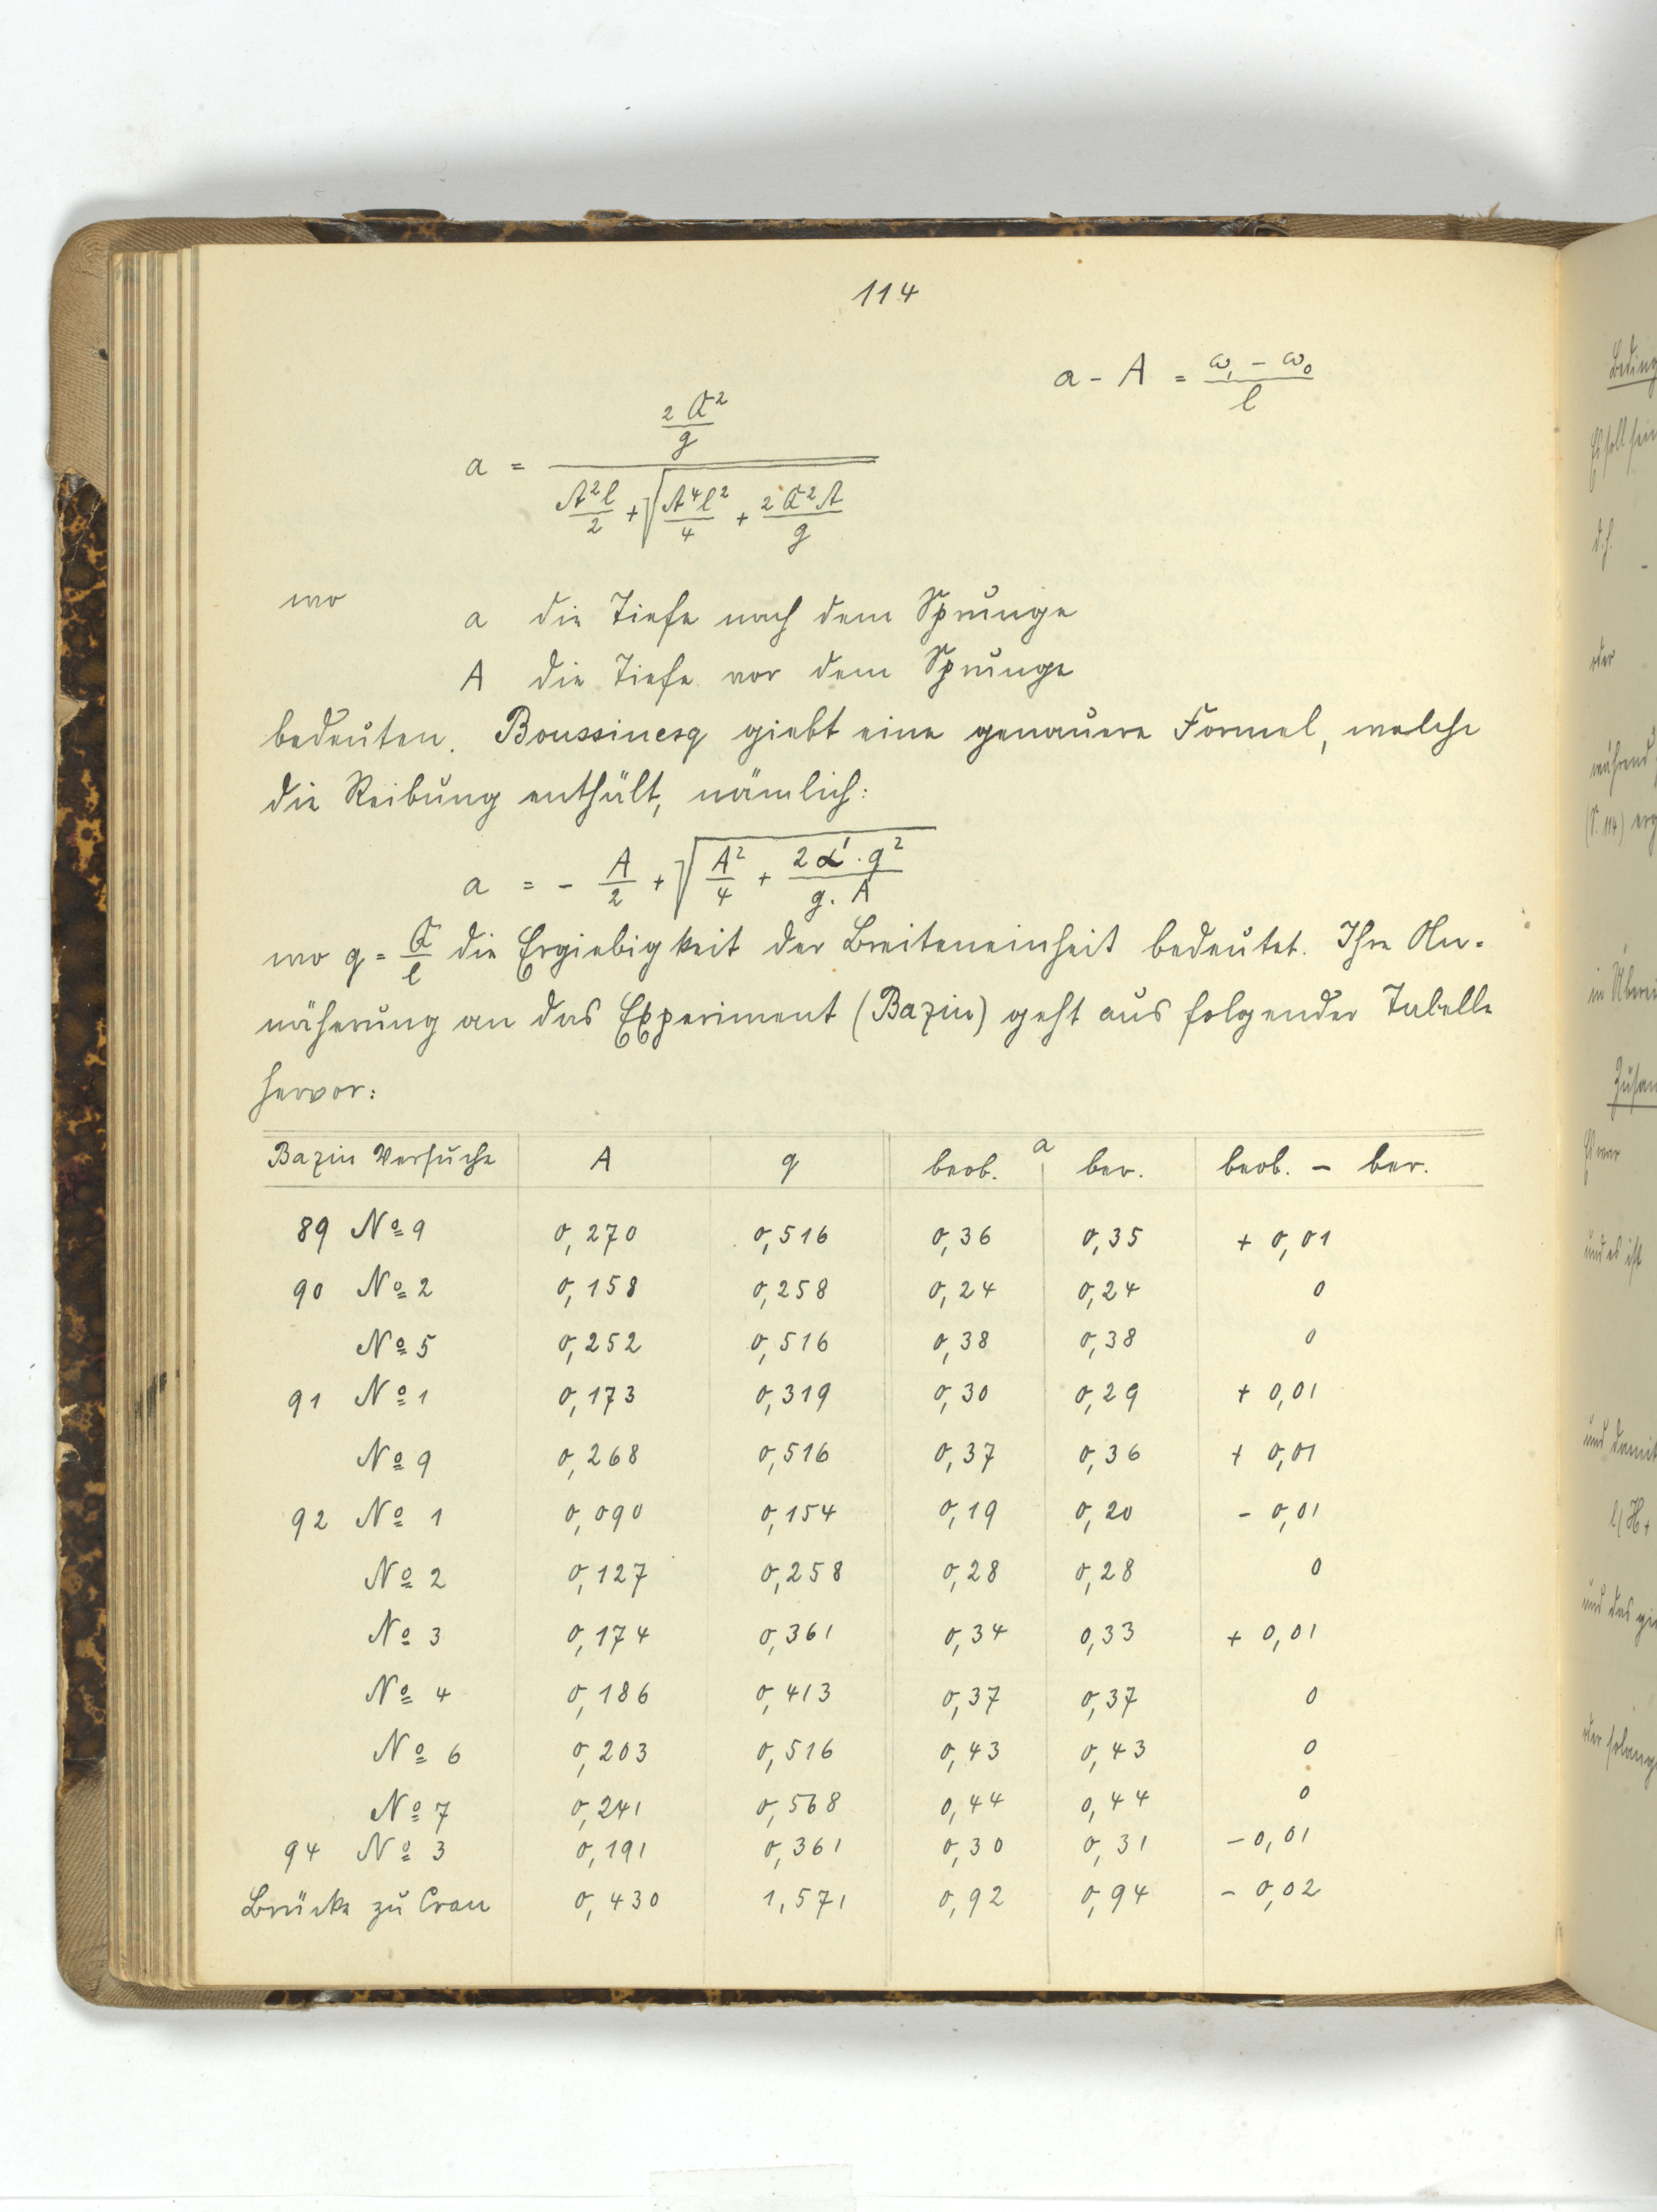 114
a - A = (ω₁ - ω₀) / l
a = (2Q²/g) / (A²l/2 + √(A⁴l²/4 + 2Q²A/g))
wo a die Tiefe nach dem Sprunge
A die Tiefe vor dem Sprunge
bedeuten. Boussinesq giebt eine genauere Formel, welche
die Reibung enthält, nämlich:
a = - A/2 + √(A²/4 + 2α'·q²/(g·A))
wo q = Q/l die Ergiebigkeit der Breiteneinheit bedeutet. Ihre An-
näherung an das Experiment (Bazin) geht aus folgender Tabelle
hervor:
Bazin Versuche A q a beob. ber. beob. - ber.
89 Nº 9 0,270 0,516 0,36 0,35 + 0,01
90 Nº 2 0,158 0,258 0,24 0,24 0
Nº 5 0,252 0,516 0,38 0,38 0
91 Nº 1 0,173 0,319 0,30 0,29 + 0,01
Nº 9 0,268 0,516 0,37 0,36 + 0,01
92 Nº 1 0,090 0,154 0,19 0,20 - 0,01
Nº 2 0,127 0,258 0,28 0,28 0
Nº 3 0,174 0,361 0,34 0,33 + 0,01
Nº 4 0,186 0,413 0,37 0,37 0
Nº 6 0,203 0,516 0,43 0,43 0
Nº 7 0,241 0,568 0,44 0,44 0
94 Nº 3 0,191 0,361 0,30 0,31 - 0,01
Brücke zu Crau 0,430 1,571 0,92 0,94 - 0,02
d.h.
oder
während
(S. 114)
und es ist
und damit